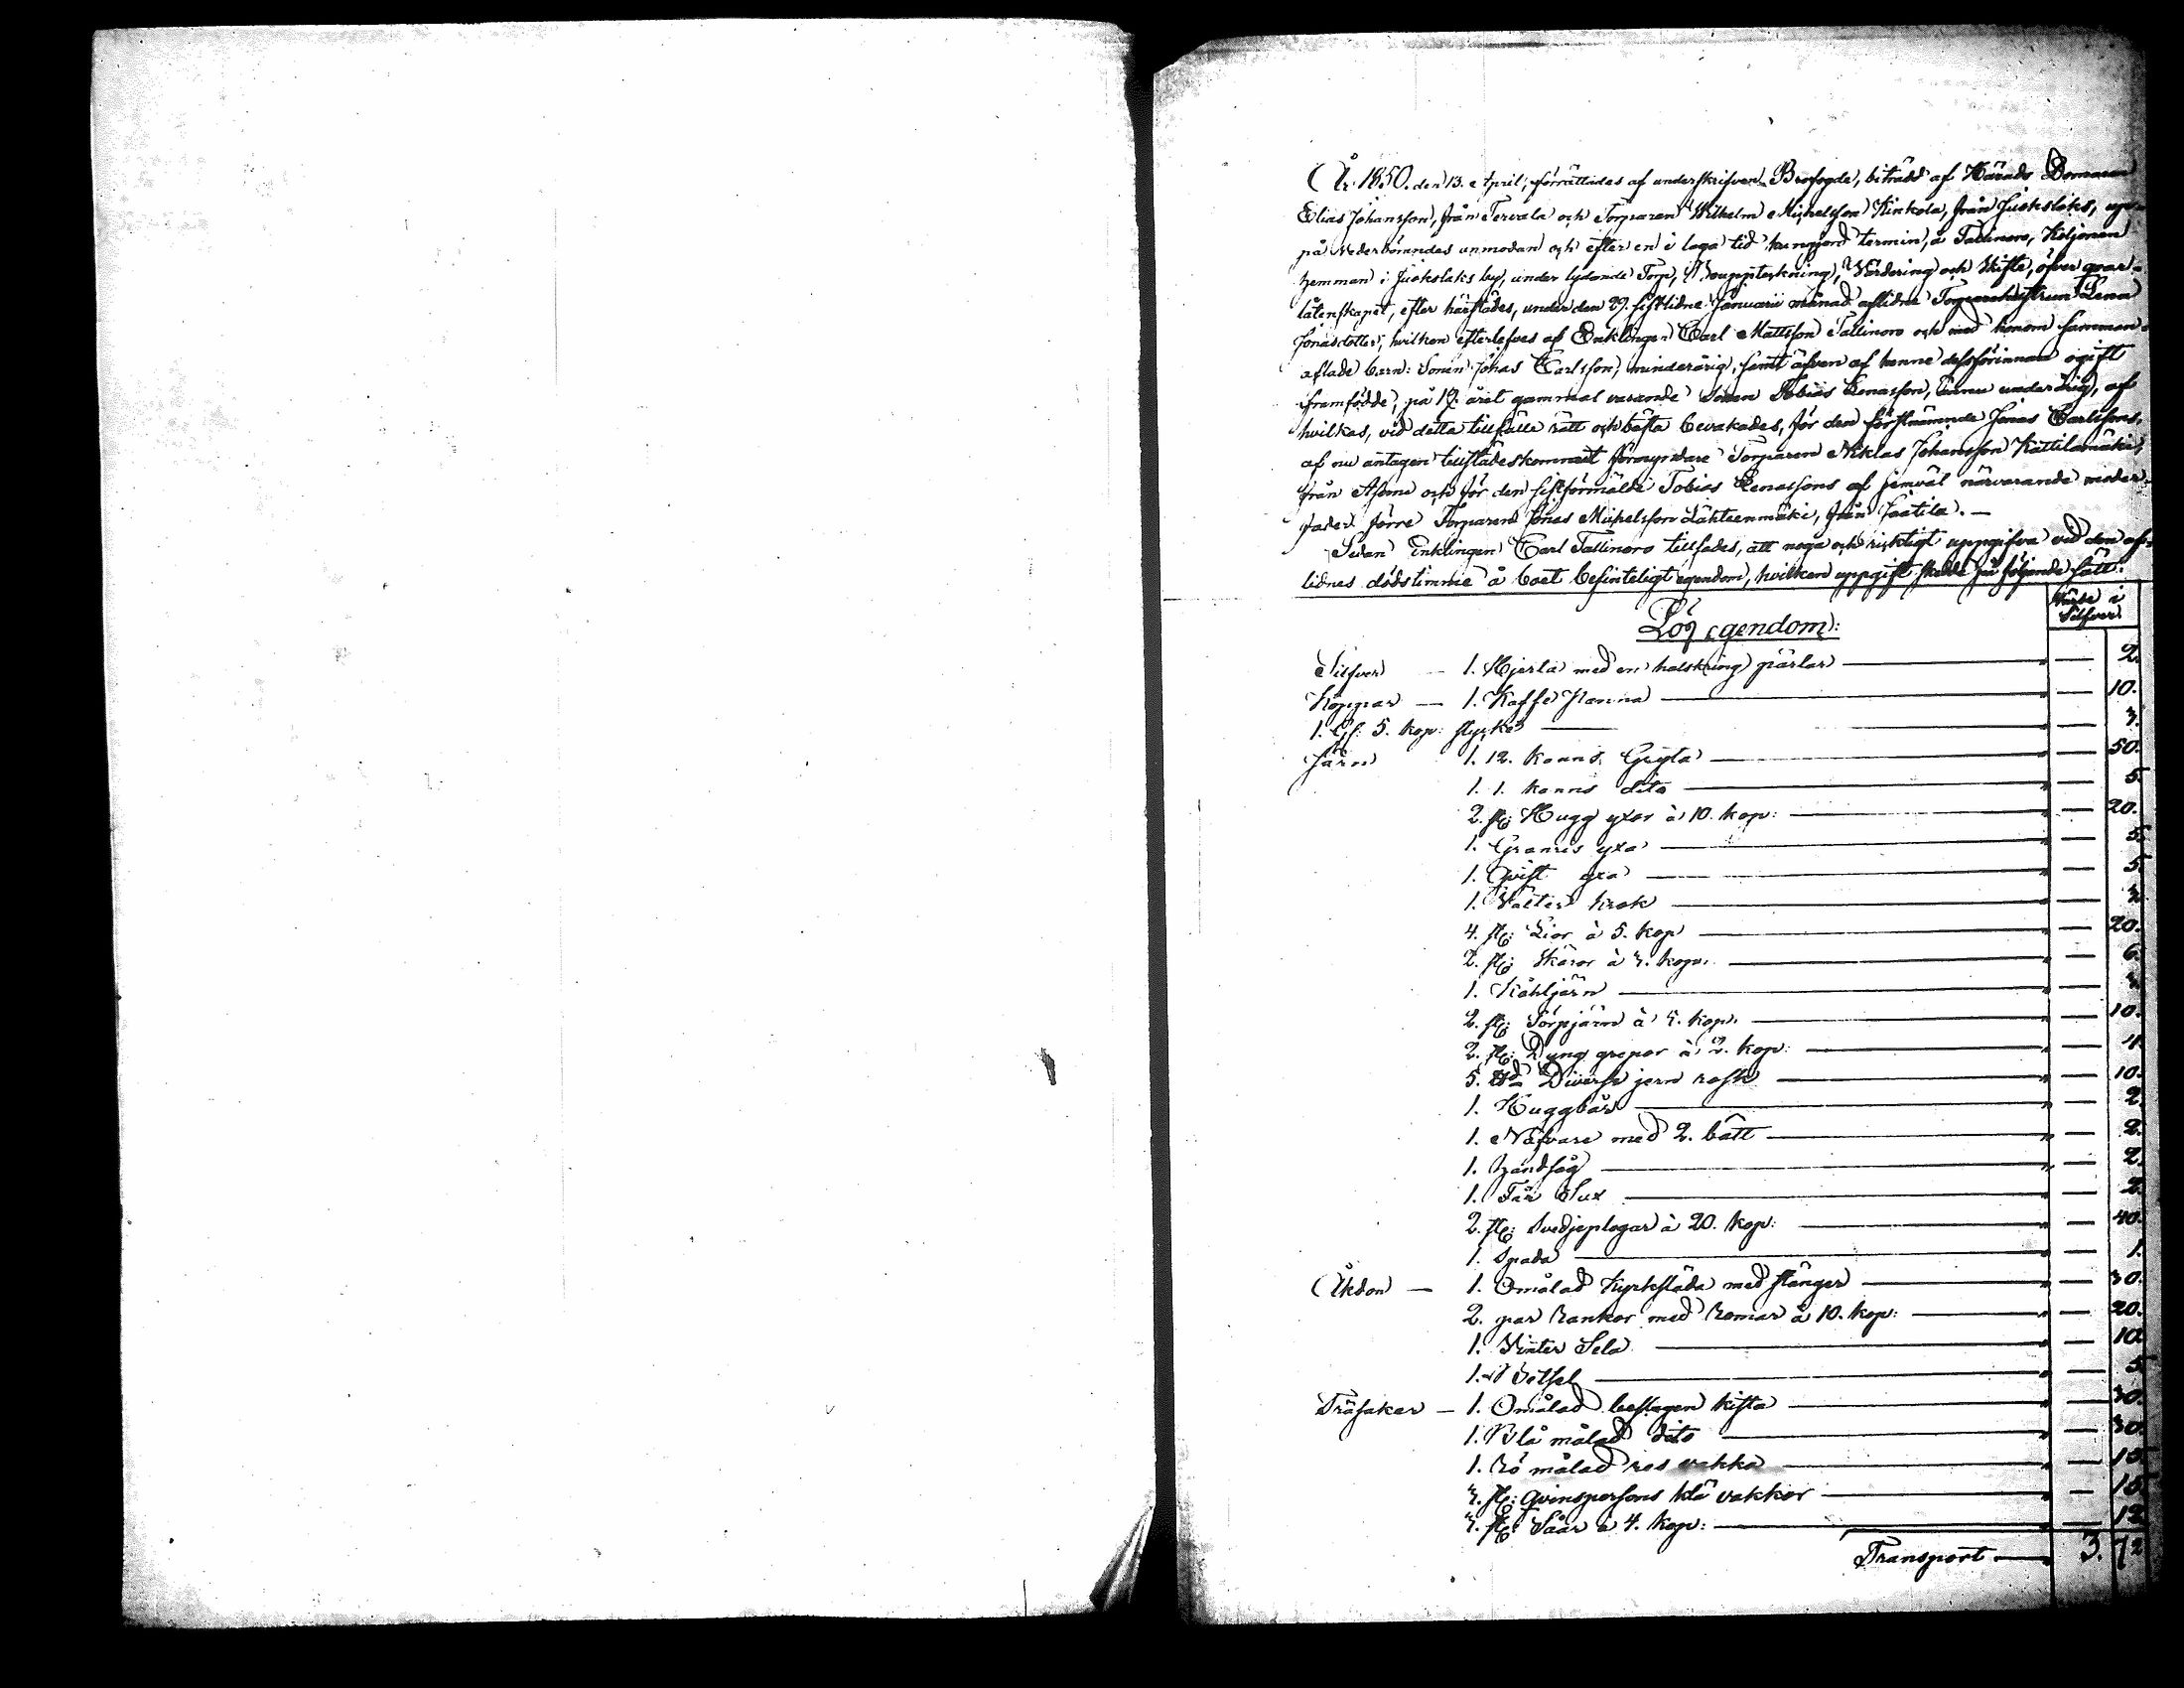 År 1850. den 13. April, förrättades af underskrifven Brofogde, biträdd af Härads Domaren
Elias Johansson, från Tervala och Torparen Wilhelm Michelsson Kinkola, från Juokslaks, upp-
på vederbörandes anmodan och efter en i laga tid kungjord termin, å Tallinoro, Koljonen
hemman i Juokslaks by, under lydande Torp, Bouppteckning, Värdering och Skifte, öfver qvar-
låtenskapet, efter härstädes, under den 29. sistlidne Januarii månad aflidne Torparehustrun Lena
Jonasdotter, hvilken efterlefves af Enklingen Carl Mattsson Tallinoro och med honom samman-
aflade barn: Sonen Johas Carlsson, minderårig, samt äfven af henne dessförinnan ogift
framfödde, på 19. året gammal varande Sonen Tobias Lenasson, ännu underårig, af
hvilkas, vid detta tillfälle rätt och bästa bevakades, för den förstnämnde Jonas Carlssons,
af nu antagen tillstädeskommit förmyndare Torparen Niklas Johansson Kattilamäki,
från och för den sistförmälde Tobias Lenassons af jemväl närvarande moder-
fader förre Torparen Jonas Michelsson Lähteenmäki, från Saatila. —
Sedan Enklingen Carl Tallinoro tillsades, att noga och riktigt uppgifva vid den af-
lidnes dödstimme å boet befinteligt egendom, hvilken uppgift skedde på följande sätt:
Värde i
Silfver
Lös egendom:
Silfver — 1. Hjerta med en halskring pärlor — " — 2.
Koppar — 1. Kaffe Panna — " — 10.
1. 5. kop: stycke — " — 3.
Järn 1. 12. kanns Gryta — " — 50.
1. 1. kanns dito — " — 5.
2. st: Hugg yxor à 10. kop: — " — 20.
1. Granris yxa — " — 5.
1. Qvist yxa — " — 5.
1. krok — " — 3.
4. st: Lior à 5. kop — " — 20.
2. st: Skäror à 3. kop: — " — 6.
1. Kåhljärn — " — 3.
2. st: Sörpjärn à 5. kop: — " — 10.
2. st: Dyng grepar à 2. kop: — " — 4.
5. Diverse jern rask — " — 10.
1. Huggbår — " — 2.
1. Nafvare med 2. bätt — " — 2.
1. handsåg — " — 2.
1. Får Sax — " — 2.
2. st: Svedjeplogar à 20. kop: — " — 40.
1. Spada — " — 1.
Åkdon — 1. Omålad Kyrksläda med stänger — " — 30.
2. par Rankor med Romar à 10. kop: — " — 20.
1. Vinter Sela — " — 10.
1. Betsel — " — 5.
Träsaker — 1. Omålad beslagen kista — " — 30.
1. Blå målad dito — " — 30.
1. Rö målad ros vakka — " — 15.
3. st: qvinspersons klä vakkor — " — 15.
3. st: Såar à 4. kop: — " — 12.
Transport — 3. 72